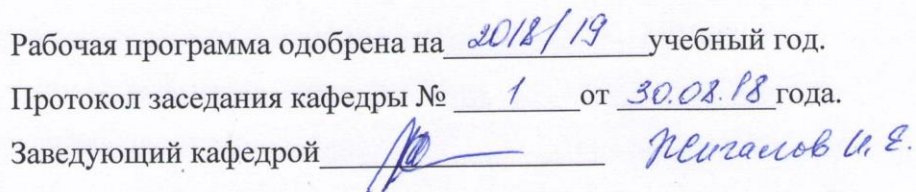 Рабочая программа одобрена на 2018/19 учебный год.
Протокол заседания кафедры № 1 от 30.08.18 года.
Заведующий кафедрой Жигалов И. Е.